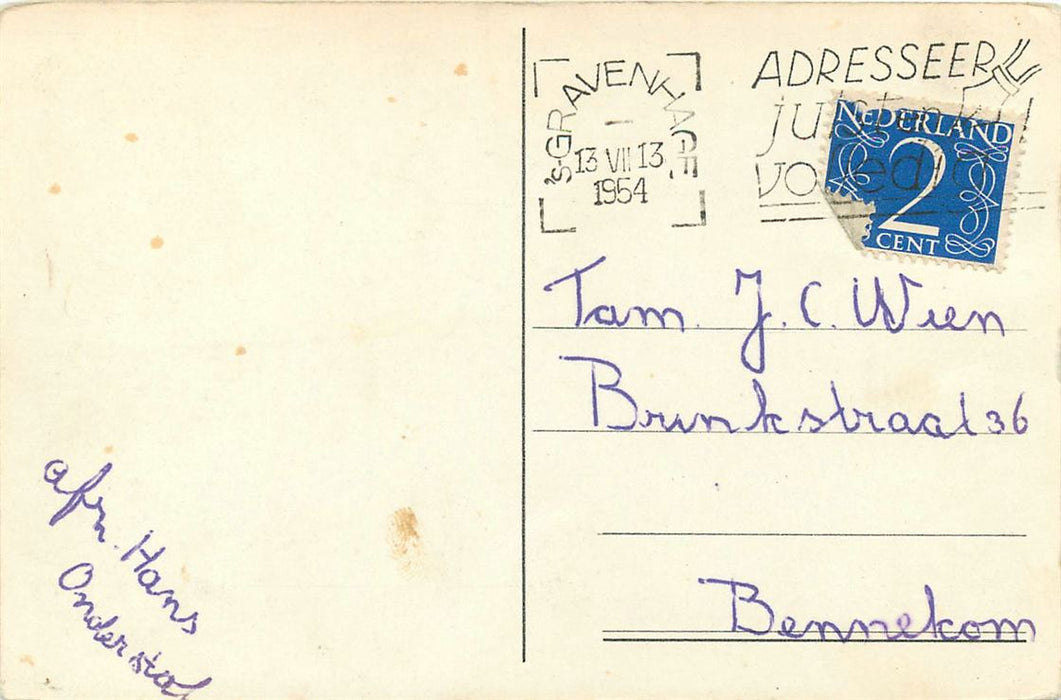 'S-GRAVENHAGE
13 VII 13
1954
ADRESSEER
juist en
volledig
NEDERLAND
2
CENT
Fam. J. C. Wien
Brinkstraat 36
Bennekom
afz. Hans
Onderstal